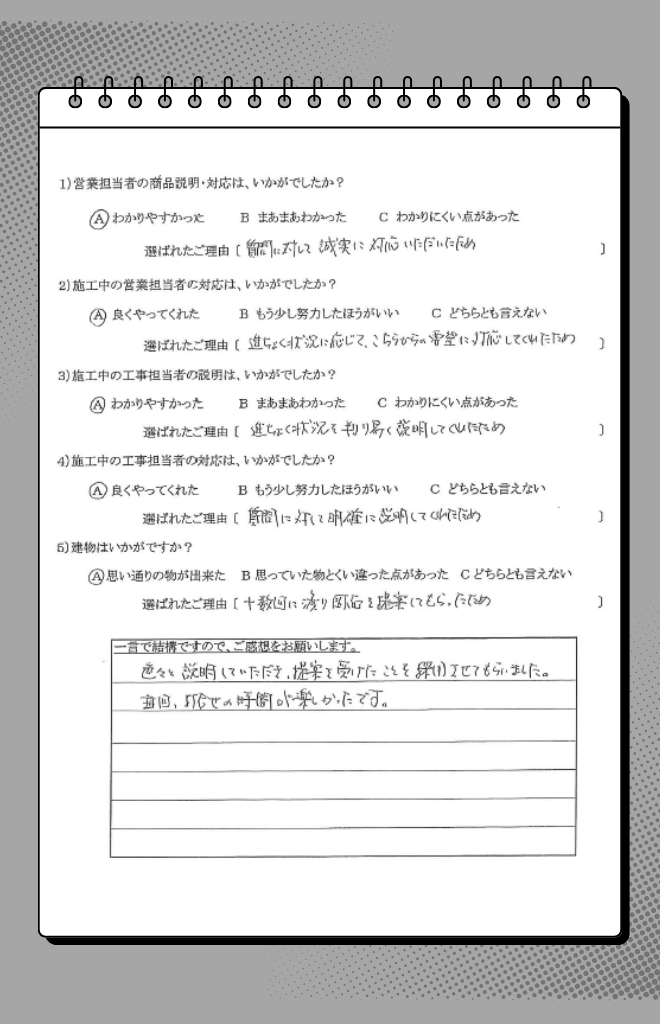 1)営業担当者の商品説明・対応は、いかがでしたか？
Ⓐ わかりやすかった B まあまあわかった C わかりにくい点があった
選ばれたご理由〔 質問に対して 誠実に 対応いただいたため 〕
2)施工中の営業担当者の対応は、いかがでしたか？
Ⓐ 良くやってくれた B もう少し努力したほうがいい C どちらとも言えない
選ばれたご理由〔 進ちょく状況に応じて、こちらからの要望に対応してくれたため 〕
3)施工中の工事担当者の説明は、いかがでしたか？
Ⓐ わかりやすかった B まあまあわかった C わかりにくい点があった
選ばれたご理由〔 進ちょく状況を判り易く説明してくれたため 〕
4)施工中の工事担当者の対応は、いかがでしたか？
Ⓐ 良くやってくれた B もう少し努力したほうがいい C どちらとも言えない
選ばれたご理由〔 質問に対して明確に説明してくれたため 〕
5)建物はいかがですか？
Ⓐ 思い通りの物が出来た B 思っていた物とくい違った点があった C どちらとも言えない
選ばれたご理由〔 十数回に渡り図面を提案してもらったため 〕
一言で結構ですので、ご感想をお願いします。
色々と説明していただき、提案を受けたことを採用させてもらいました。
毎回、打合せの時間が楽しかったです。